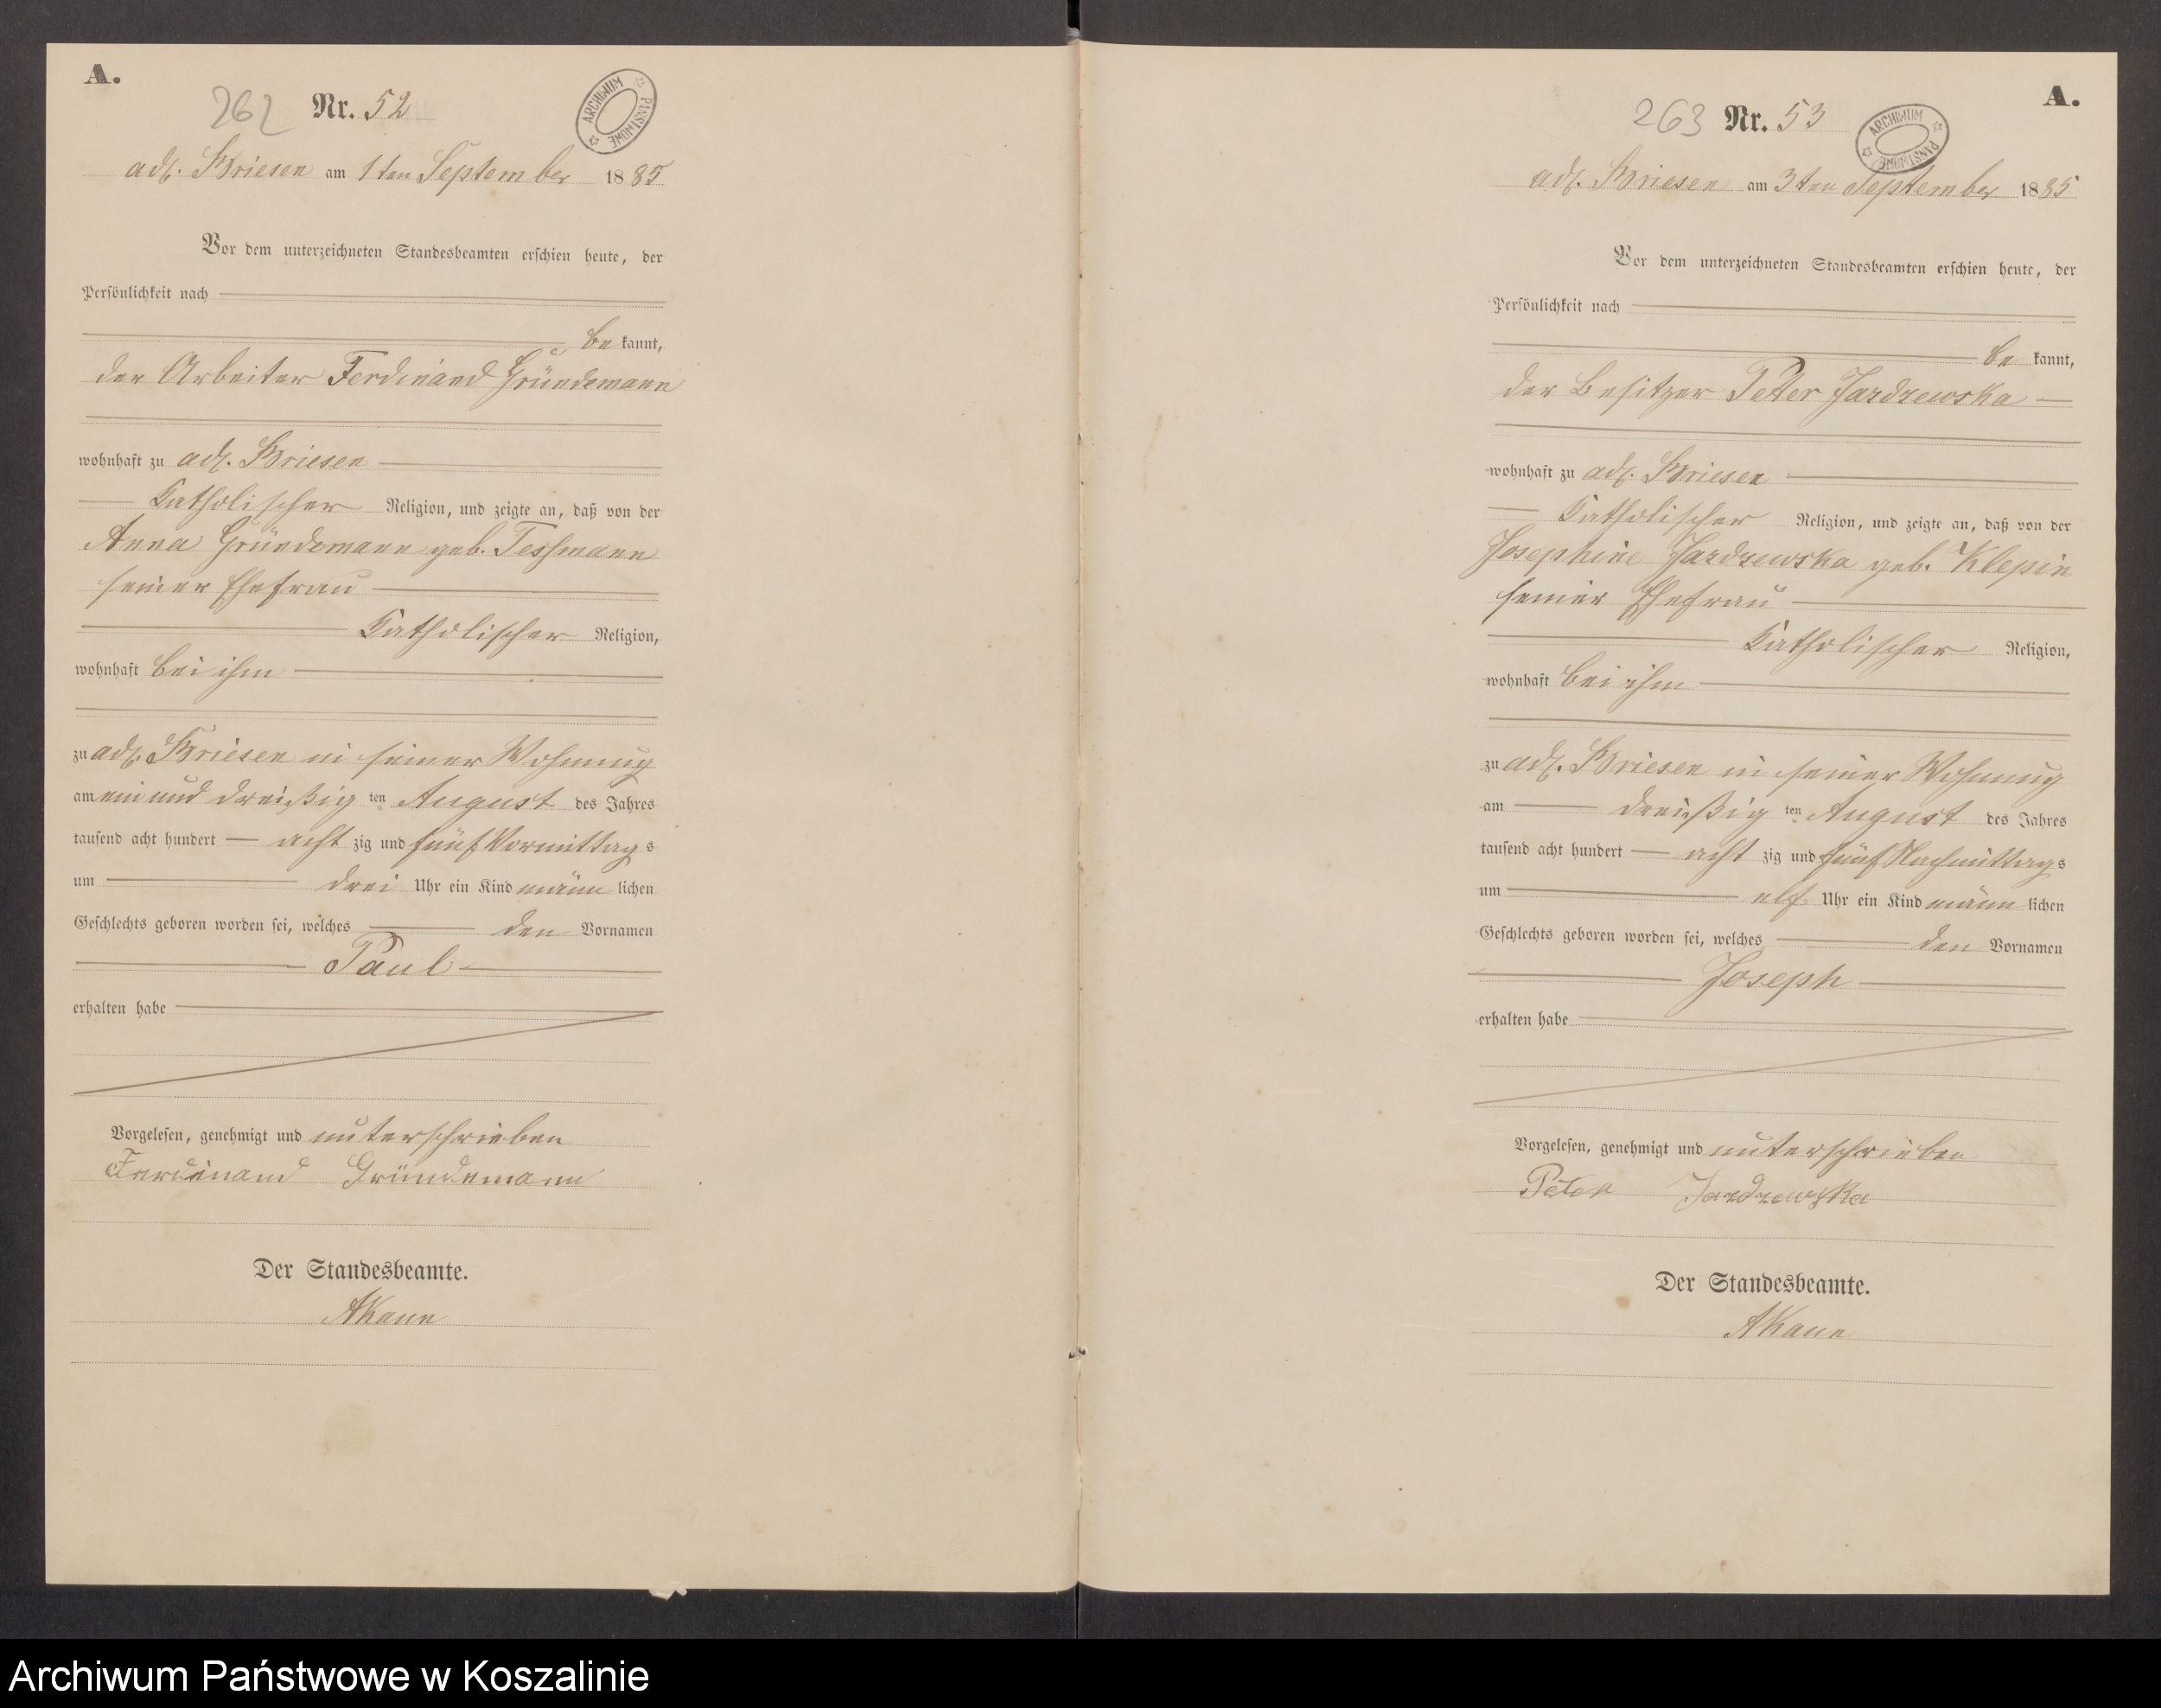 A.
262 Nr. 52
ARCHIWUM PAŃSTWOWE
adl. Briesen am 1ten September 1885
Vor dem unterzeichneten Standesbeamten erschien heute, der
Persönlichkeit nach
be kannt,
der Arbeiter Ferdinand Gründemann
wohnhaft zu adl. Briesen
Katholischer Religion, und zeigte an, daß von der
Anna Gründemann geb. Tessmann
seiner Ehefrau
Katholischer Religion,
wohnhaft bei ihm
zu adl. Briesen in seiner Wohnung
am ein und dreißig ten August des Jahres
tausend acht hundert acht zig und fünf Vormittag s
um drei Uhr ein Kind männ lichen
Geschlechts geboren worden sei, welches den Vornamen
Paul
erhalten habe
Vorgelesen, genehmigt und unterschrieben
Ferdinand Gründemann
Der Standesbeamte.
AKann
A.
263 Nr. 53
ARCHIWUM PAŃSTWOWE
adl. Briesen am 3ten September 1885
Vor dem unterzeichneten Standesbeamten erschien heute, der
Persönlichkeit nach
be kannt,
der Besitzer Peter Jazdzewska
wohnhaft zu adl. Briesen
Katholischer Religion, und zeigte an, daß von der
Josephine Jazdzewska geb. Klepin
seiner Ehefrau
Katholischer Religion,
wohnhaft bei ihm
zu adl. Briesen in seiner Wohnung
am dreißig ten August des Jahres
tausend acht hundert acht zig und fünf Nachmittag s
um elf Uhr ein Kind männ lichen
Geschlechts geboren worden sei, welches den Vornamen
Joseph
erhalten habe
Vorgelesen, genehmigt und unterschrieben
Peter Jazdzewska
Der Standesbeamte.
AKann
Archiwum Państwowe w Koszalinie